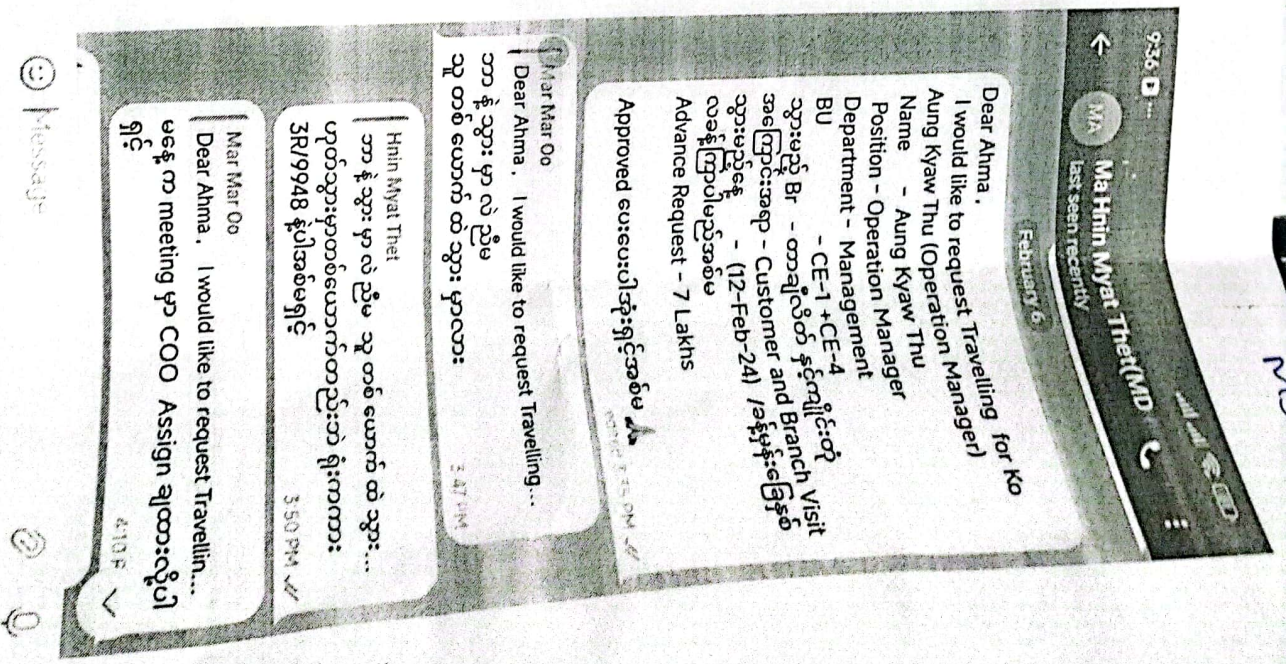 9:36
Ma Hnin Myat Thet(MD
MA
last seen recently
February 6
Dear Ahma ,
I would like to request Travelling for Ko
Aung Kyaw Thu (Operation Manager)
Name - Aung Kyaw Thu
Position - Operation Manager
Department - Management
BU - CE-1 +CE-4
သွားမည့် Br - တာချီလိတ် နှင့်ကျိုင်းတုံ
အကြောင်းအရာ - Customer and Branch Visit
သွားမည့်နေ့ - (12-Feb-24) /ခန့်မှန်းခြေနှစ်
လခန့်ကြာပါမည်အစ်မ
Advance Request - 7 Lakhs
Approved ပေးပေးပါအုံးရှင့်အစ်မ 🙏
Mar Mar Oo
Dear Ahma , I would like to request Travelling...
ဘာ နဲ့ သွား မှာ လဲ ညီမ
သူ တစ် ယောက် ထဲ သွား မှာလား
3:47 PM
Hnin Myat Thet
ဘာ နဲ့ သွား မှာ လဲ ညီမ သူ တစ် ယောက် ထဲ သွား...
ဟုတ်သွားမှာတစ်ယောက်တည်းပဲ ရုံးကကား
3R/9948 နဲ့ပါအစ်မရှင့်
3:50 PM
Mar Mar Oo
Dear Ahma , I would like to request Travellin...
မနေ့ က meeting မှာ COO Assign ချထားလို့ပါ
ရှင့်
4:10 P
Message